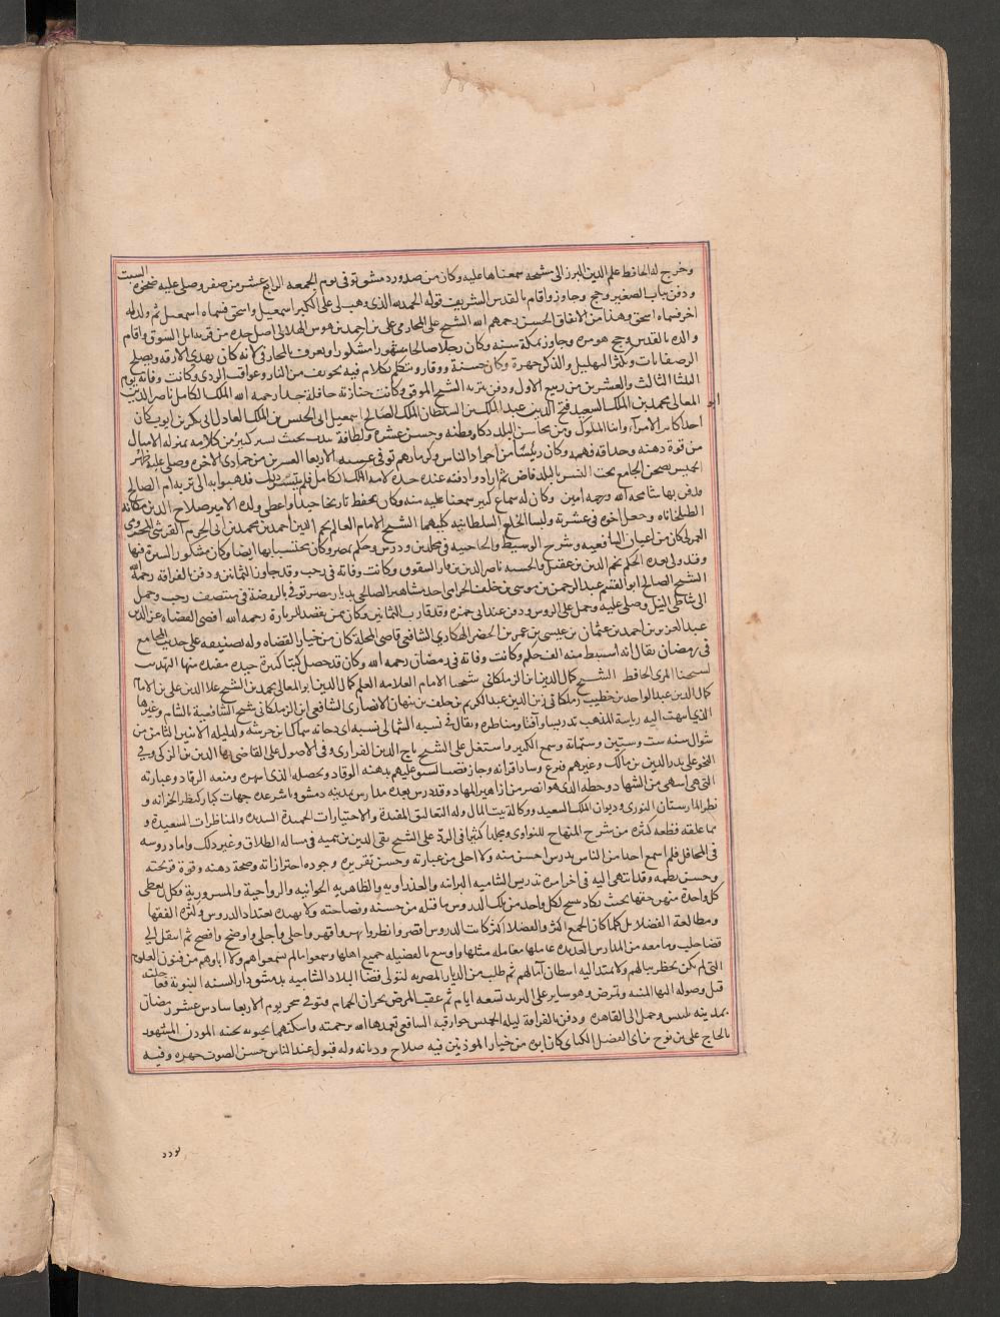 وخرج له الحافظ علم الدين البرزالى مشيخه سمعناها عليه وكان من صدور دمشق توفى يوم الجمعه الرابع عشر من صفر وصلى عليه ضحوة السبت
ودفن بباب الصغير وحج وجاور واقام بالقدس الشريف قوله الحمد لله الذى وهب لى على الكبر اسمعيل واسحق فسماه اسمعيل ثم ولد له
اخر فسماه اسحق وهذا من الاتفاق الحسن رحمهم الله الشيخ على المحارفى على بن احمد بن هوس الهلالى اصل جده من قريه ابل السوق واقام
والده بالقدس وحج هو مره وجاور بمكة سنه وكان رجلا صالحا مشهورا مشكورا ويعرف بالمحارفى لانه كان يهدى الازقه ويصلح
الرصفانات وكثر التهليل والذكر جهرة وكان حسنة ووقار ويتكلم بكلام فيه تخويف من النار وعواقب الردى وكانت وفاته يوم
الثلثا الثالث والعشرين من ربيع الاول ودفن بتربه الشيخ الموفق وكانت جنازته حافلة جدا رحمه الله الملك الكامل ناصر الدين
ابو المعالى محمد بن الملك السعيد فتح الدين عبد الملك بن السلطان الملك الصالح اسمعيل ابى الجيش بن الملك العادل ابى بكر بن ايوب كان
احد اكابر الامرآء وابنا الملوك ومن محاسن البلد ذكا وفطنه وحسن عشره ولطافة كلام بحيث يسرد كثير من كلامه بمنزله الامثال
من قوة ذهنه وحداقة فهمه وكان رئيسا من اجواد الناس وكبارهم توفى عشيه الاربعا العشرين من جمادى الاخره وصلى عليه ظهر
الخميس بصحن الجامع تحت النسر بالبلد ثم ارادوا دفنه عند جده لامه الملك الكامل فلم يتيسر ذلك فذهبوا به الى تربه ام الصالح
فدفن بها سامحه الله ورحمه امين وكان له سماع كبير سمعنا عليه منه وكان يحفظ تاريخا جيدا واعطى ولده الامير صلاح الدين مكانه
الطبلخاناه وجعل اخوه فى عشرته ولبسا الخلع السلطانيه كليهما الشيخ الامام العالم نجم الدين احمد بن محمد بن ابى الحرم القرشى المخزومى
القمولى كان من اعيان الشافعيه وشرح الوسيط والحاجبيه فى مجلدين ودرس وحكم بمصر وكان محتسبا بها ايضا وكان مشكور السيرة فيها
وقد ولى بعده الحكم نجم الدين بن عقيل والحسبه ناصر الدين بن قار السقوف وكانت وفاته فى رجب وقد جاوز الثمانين ودفن بالقرافة رحمه الله
الشيخ الصالح ابو القسم عبد الرحمن بن موسى بن خلف الحرامى احد مشاهير الصالحين بديار مصر توفى بالروضة فى منتصف رجب وحمل
الى شاطى النيل وصلى عليه وحمل على الروس ودفن عند ابى جمره وقد قارب الثمانين وكان ممن يقصد للزيارة رحمه الله اقضى القضاه عز الدين
عبد العزيز بن احمد بن عثمان بن عيسى بن عمر بن الخضر الهكارى الشافعى قاضى المحلة كان من خيار القضاه وله تصنيف على حديث المجامع
فى رمضان يقال انه استنبط منه الف حكم وكانت وفاته فى رمضان رحمه الله وكان قد حصل كتبا كثيرة جيده مفيده منها التهذيب
لشيخنا المزى الحافظ الشيخ كمال الدين ابن الزملكانى شيخنا الامام العلامه العلم كمال الدين ابو المعالى محمد بن الشيخ علا الدين على بن الامام
كمال الدين عبد الواحد بن خطيب زملكا زين الدين عبد الكريم بن خلف بن نبهان الانصارى الشافعى ابن الزملكانى شيخ الشافعية بالشام وغيرها
الذى انتهت اليه رياسة المذهب تدريسا وافتا ومناظره ويقال فى نسبه السماكى نسبه الى ابى دجانه سماك بن خرشه ولد ليله الاثنين الثامن من
شوال سنه ست وستين وستمائة وسمع الكثير واشتغل على الشيخ تاج الدين الفزارى وفى الاصول على القاضى بها الدين بن الزكى وفي
النحو على بدر الدين بن مالك وغيرهم وبرع وساد اقرانه وحاز قصب السبق عليهم بذهنه الوقاد وتحصيله الذى اسهره ومنعه الرقاد وعبارته
التى هى اشهى من الشهاد وخطه الذى هو انضر من ازاهير المهاد وقد درس بعده مدارس بمدينه دمشق وباشر عده جهات كبار كنظر الخزانه و
نظر المارستان النورى وديوان الملك السعيد ووكالة بيت المال وله التعاليق المفيدة والاختيارات الحميدة السديده والمناظرات السعيدة و
مما علقه قطعه كبيره من شرح المنهاج للنواوى ومجلدا كبيرا فى الرد على الشيخ تقى الدين بن تيميه فى مسالة الطلاق وغير ذلك واما دروسه
فى المحافل فلم اسمع احدا من الناس يدرس احسن منه ولا احلى من عبارته وحسن تقريره وجوده احترازاته وصحة ذهنه وقوة قريحته
وحسن نظمه وقد انتهى اليه فى اخر امره تدريس الشاميه البرانيه والعذراويه والظاهريه الجوانيه والرواحية والمسرورية فكل يعطى
كل واحدة منهن حقها بحيث يكاد ينسخ لكل واحد من تلك الدروس ما قبله من حسنه وفصاحته ولا يهيده تعداد الدروس وكثرة الفقها
ومطالعة الفضلا بل كلما كان الجمع اكثر والفضلا اكثر كانت الدروس انضر وانظر وابهر واقهر واحلى واجلى واوضح وافصح ثم انتقل الى
قضا حلب وما معه من المدارس العديده عاملها معامله مثلها واوسع بالفضيله جميع اهلها وسمعوا ما لم يسمعوا هم ولا اباوهم من فنون العلوم
التى لم تكن تخطر ببالهم ولا تمتد اليه اشطان آمالهم ثم طلب من الديار المصريه ليتولى قضا البلاد الشاميه بدمشق دار السنه النبوية فعاجلته
قبل وصوله اليها المنيه وتمرض وهو ساير على البريد تسعه ايام ثم عقب المرض بحران الحمام فتوفى سحر يوم الاربعا سادس عشر رمضان
بمدينه بلبيس وحمل الى القاهره ودفن بالقرافة ليله الخميس جوار قبه الشافعى تغمدها الله برحمته واسكنهما بحبوبه جنته الموذن المشهور
بالحاج على بن نوح بن ابى الفضل الكنانى كان ابوه من خيار الموذنين فيه صلاح وديانه وله قبول عند الناس حسن الصوت جهره وفيه
تودد